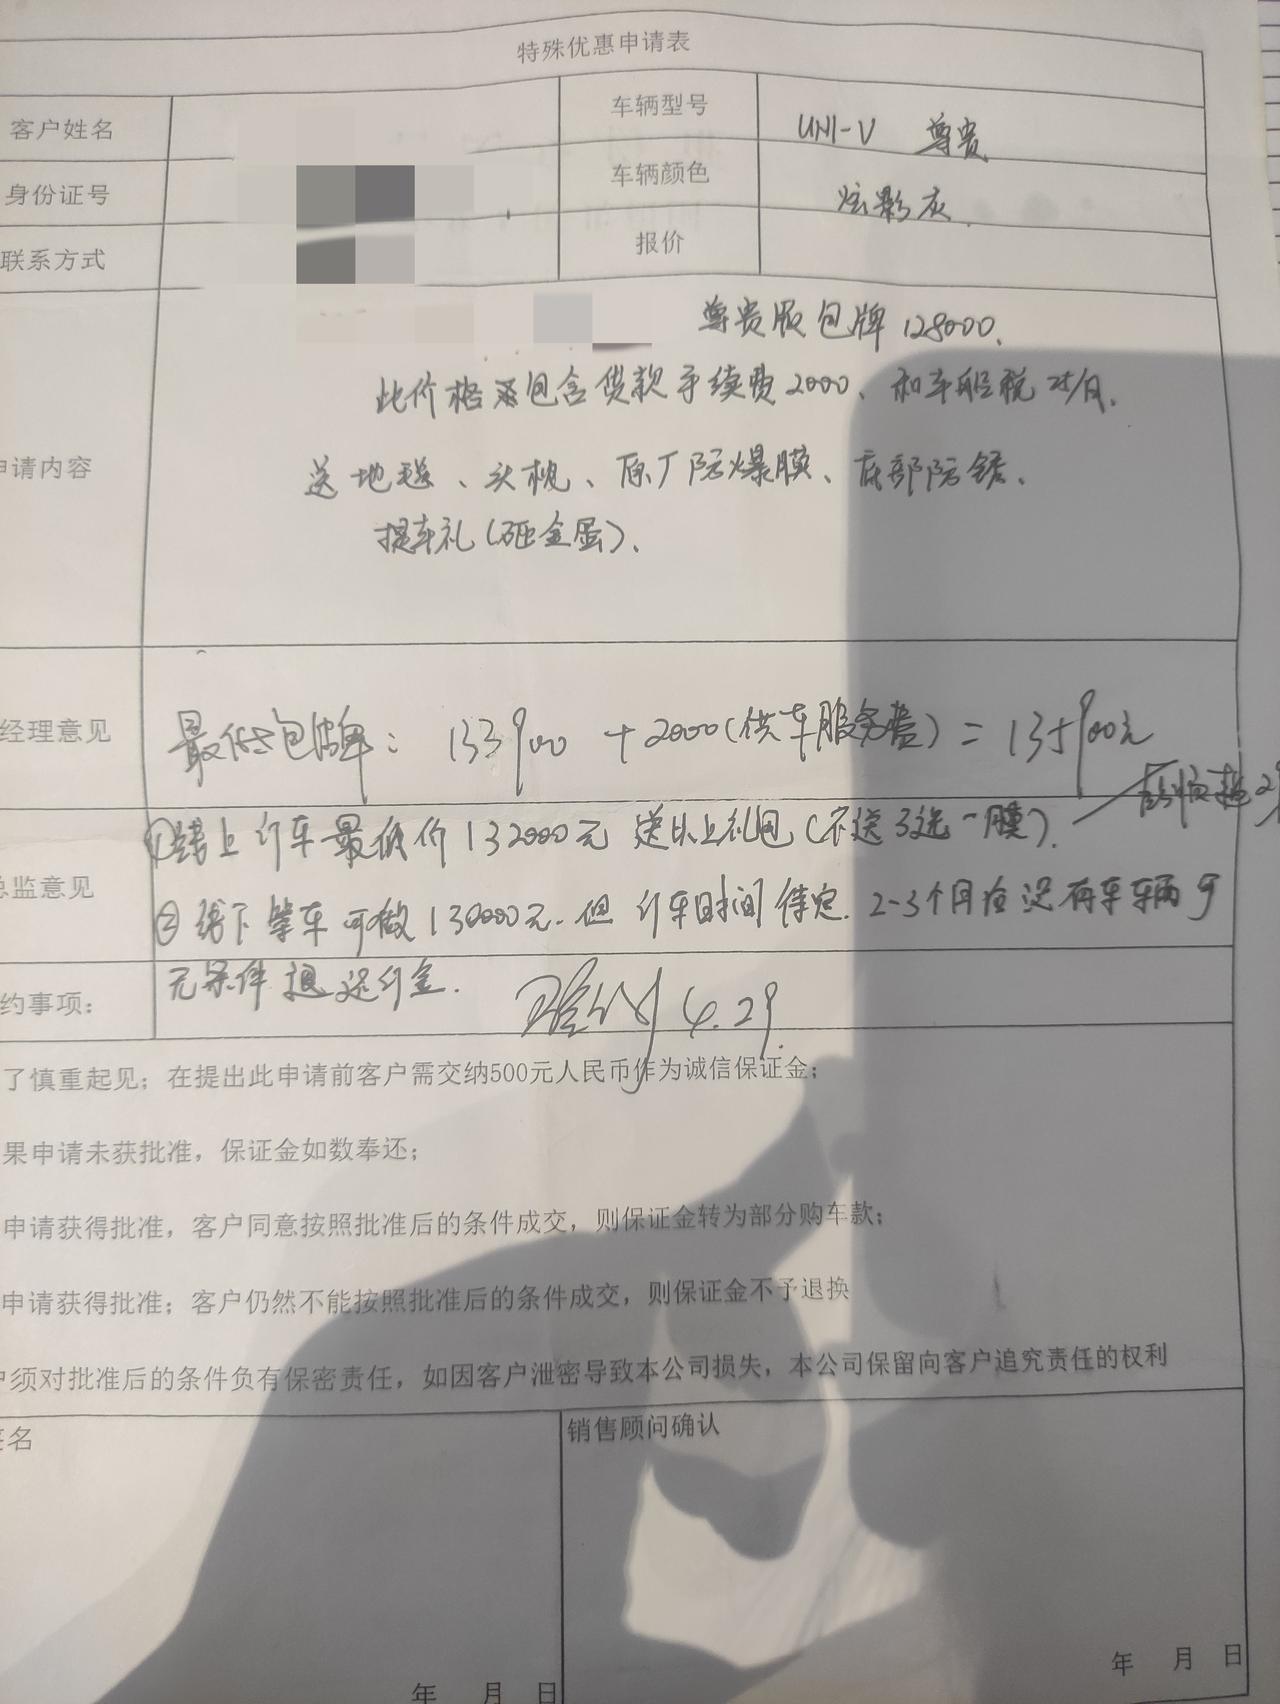 特殊优惠申请表
客户姓名 车辆型号 UNI-V 尊贵
身份证号 车辆颜色 炫影灰
联系方式 报价
尊贵版包牌128000.
此价格 包含贷款手续费2000、和车船税
申请内容
送地毯、头枕、原厂防爆膜、底部防锈、
提车礼(砸金蛋).
经理意见 最低包牌: 133900 +2000(供车服务费)=135900元
①线上订车最低价132000元 送以上礼包(不送3选一膜).
总监意见
②线下等车可做130000元.但订车时间待定.2-3个月 没有车车辆可
无条件退还订金. 4.29
约事项:
了慎重起见;在提出此申请前客户需交纳500元人民币作为诚信保证金;
果申请未获批准,保证金如数奉还;
申请获得批准,客户同意按照批准后的条件成交,则保证金转为部分购车款;
申请获得批准;客户仍然不能按照批准后的条件成交,则保证金不予退换
户须对批准后的条件负有保密责任,如因客户泄密导致本公司损失,本公司保留向客户追究责任的权利
签名 销售顾问确认
年 月 日 年 月 日